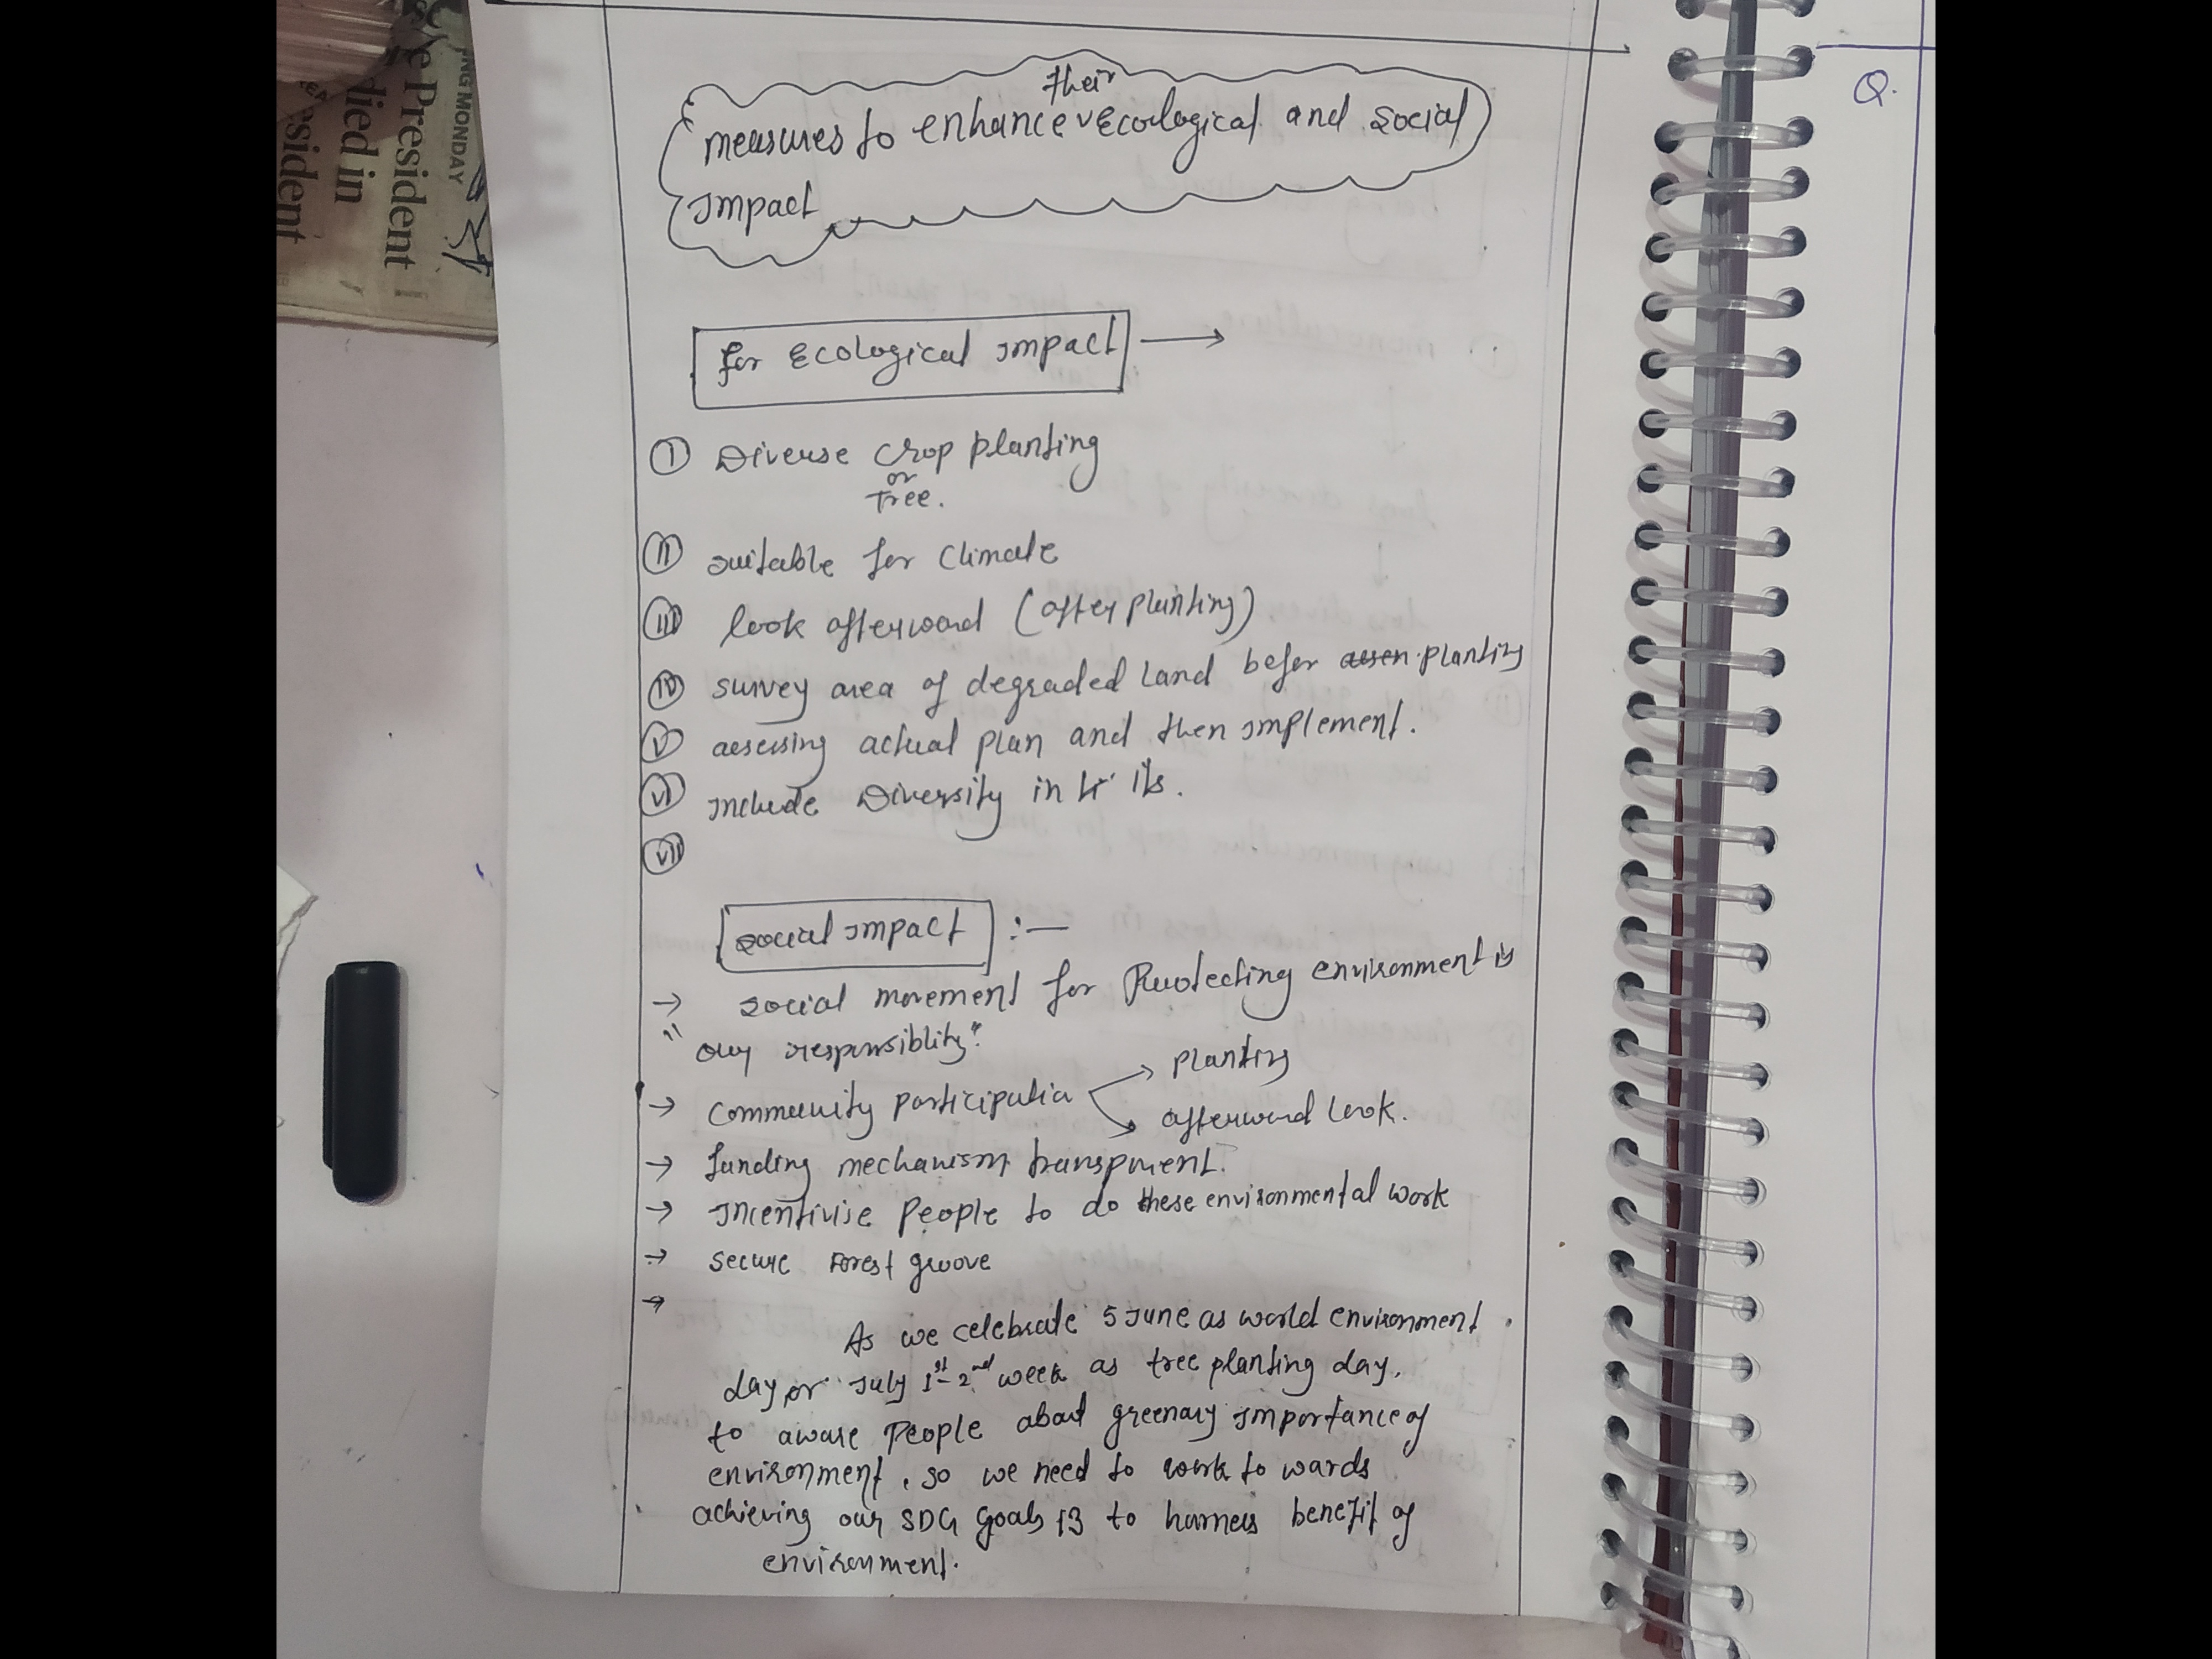 their
measures to enhance Ecological and social
Impact
for Ecological Impact →
i Diverse crop planting
or
Tree.
ii suitable for Climate
iii look afterword (after planting)
iv survey area of degraded land befor planting
v assessing actual plan and then implement.
vi Include Diversity in its.
vii
social impact :-
→ social movement for Protecting environment is
"our responsiblity".
→ community participation → planting
→ afterword look.
→ funding mechanism transparent.
→ Incentivise People to do these environmental work
→ secure Forest groove
→
As we celebrate 5 June as world environment
day or July 1st - 2nd week as tree planting day.
to aware People about greenary importance of
environment, so we need to work to wards
achieving our SDG Goals 13 to harness benefit of
environment.
Q.
NG MONDAY
e President
died in
sident